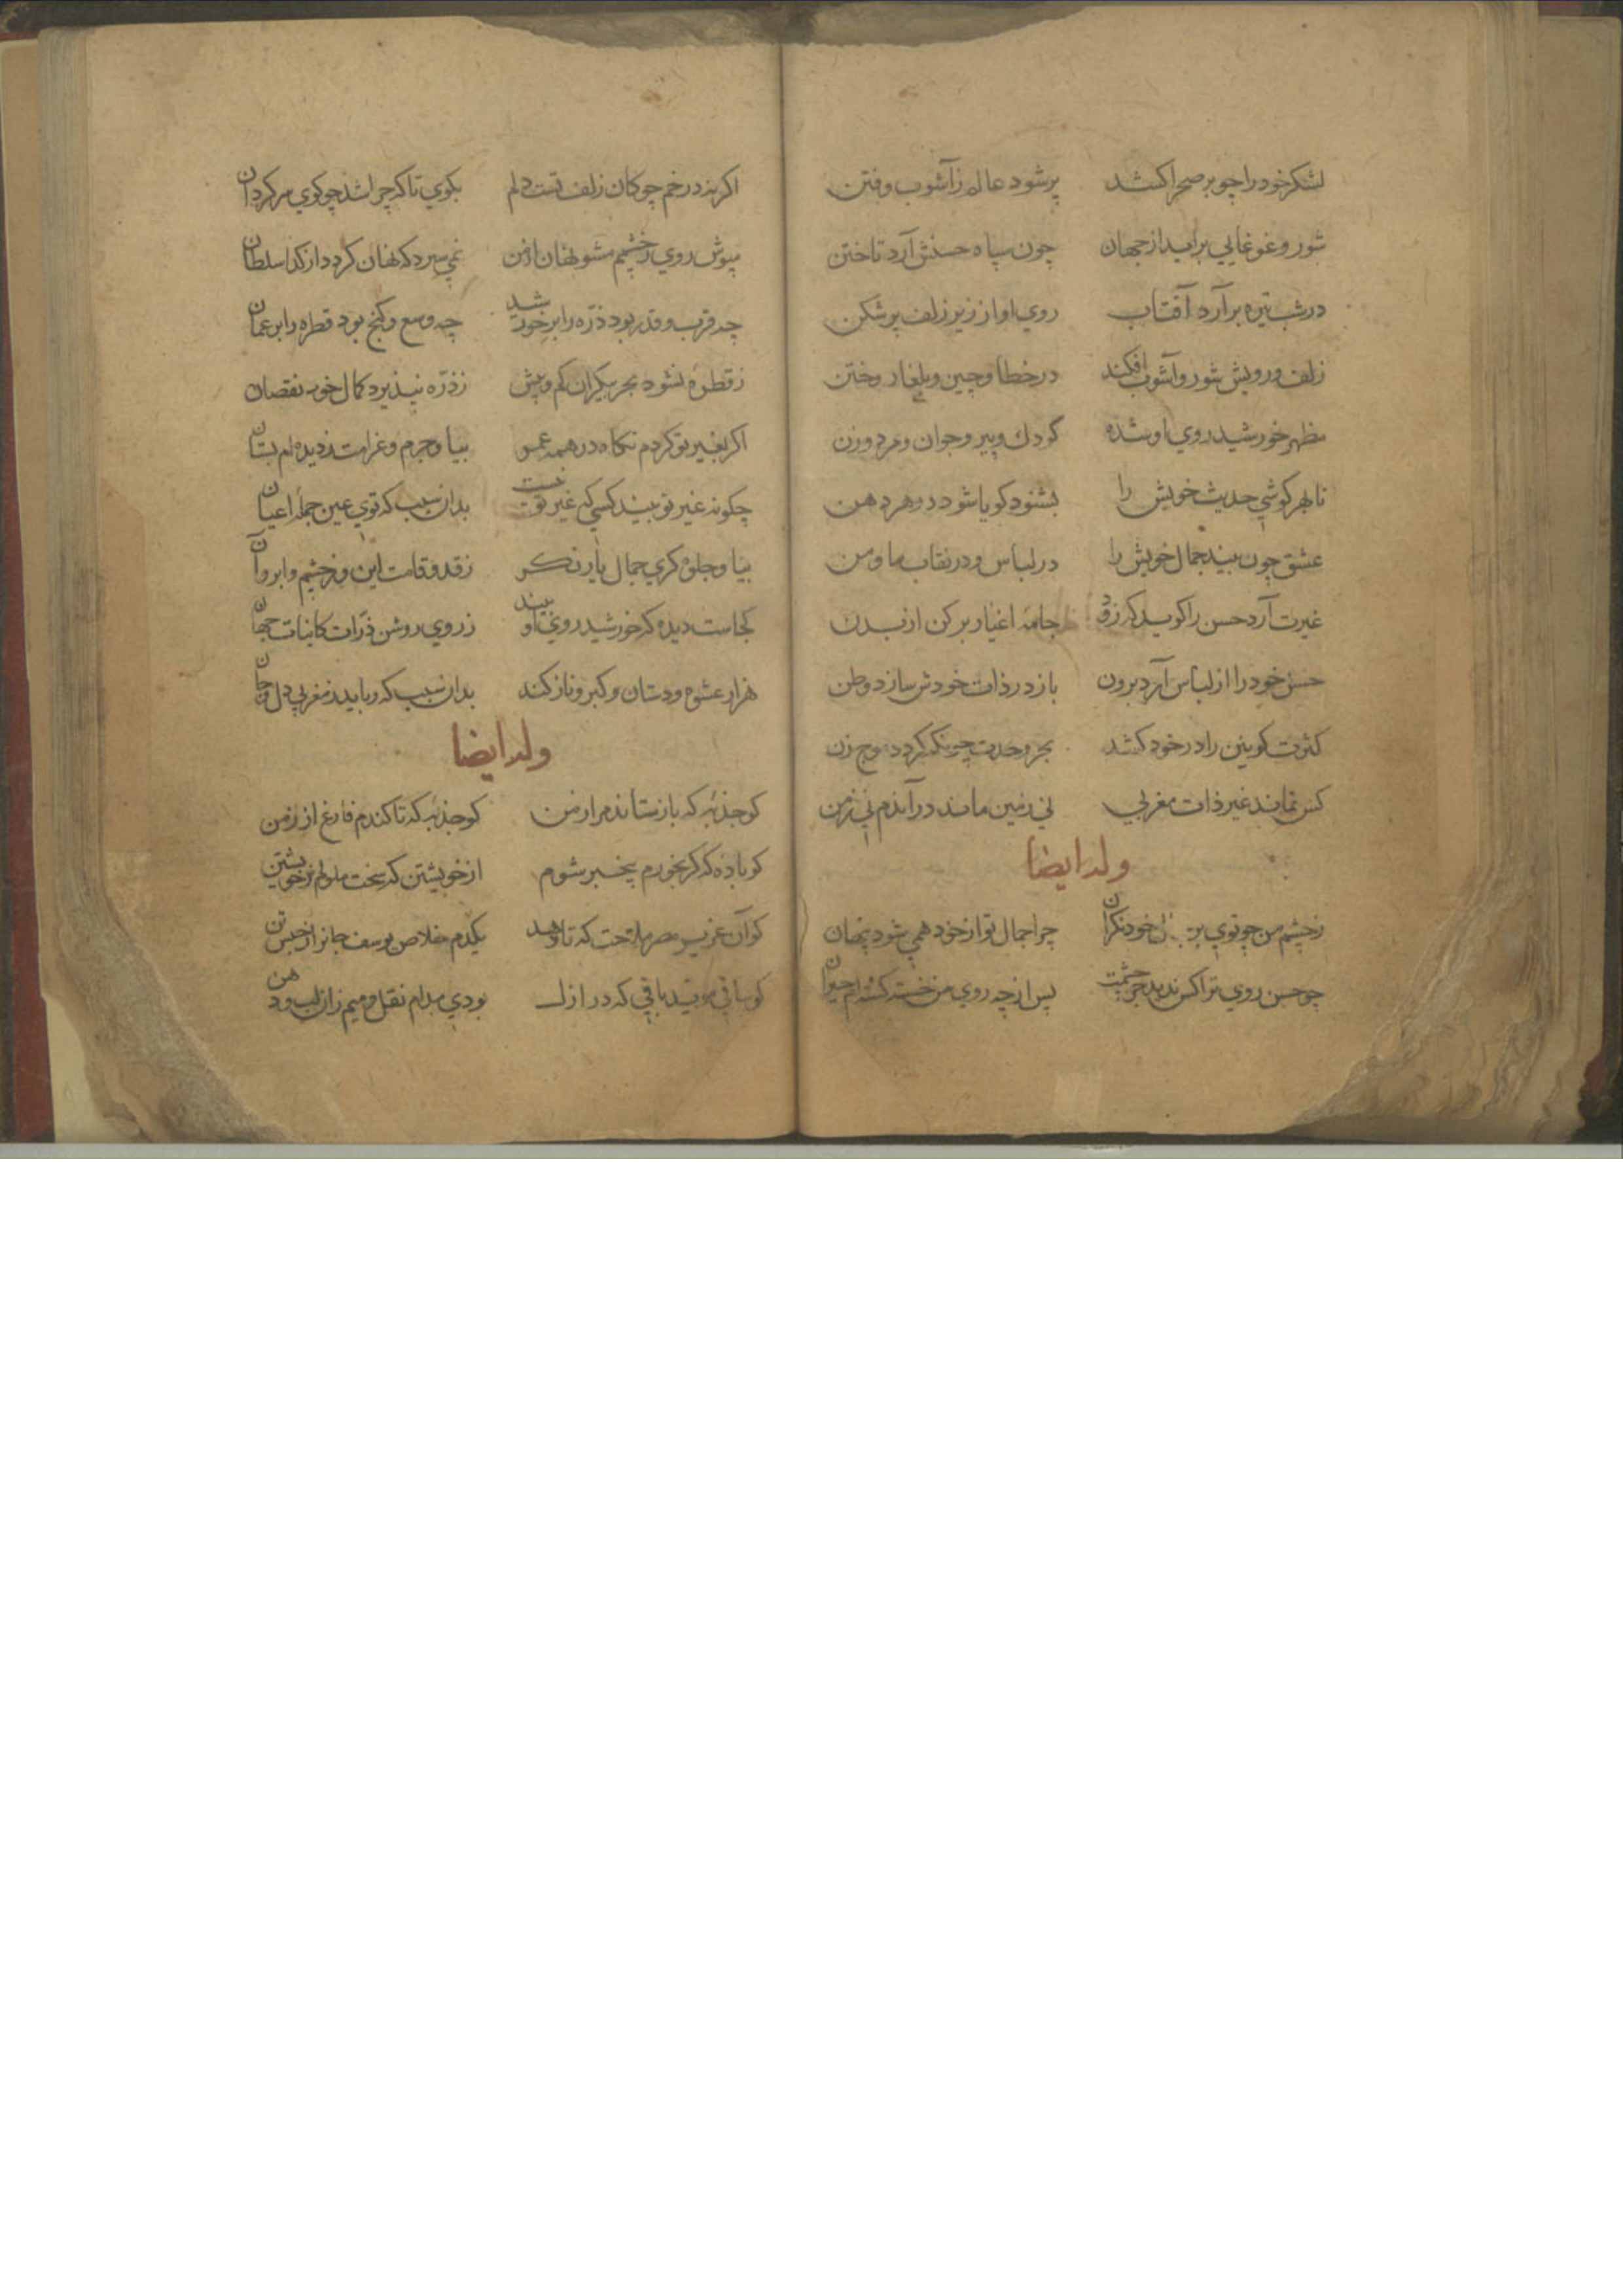 لشکر خود را چو بر صحرا کشد پر شود عالم ز آشوب و فتن
شور و غوغایی برآید از جهان چون سپاه حسنش آرد تاختن
در شب تیره برآرد آفتاب روی او از زیر زلف پر شکن
زلف و رویش شور و آشوب افکند در خطا و چین و بلغار و ختن
مظهر خورشید روی او شده کودک و پیر و جوان و مرد و زن
تا بهر کوشی حدیث خویش را بشنود کویا شود در هر دهن
عشق چون بیند جمال خویش را در لباس و در نقاب ما و من
غیرت آرد حسن را کوید که زود جامهٔ اغیار بر کن از بدن
حسن خود را از لباس آرد برون باز در ذات خودش سازد وطن
کثرت کونین را در خود کشد بحر وحدت چونکه کردد موج زن
کس نماند غیر ذات مغربی نی زمین ماند در آندم نی زمن
وله ایضا
ز چشم من چو تویی بر خود نکران چرا جمال تو از خود همی شود پنهان
چو حسن روی ترا کس ندید جز چشمت پس از چه روی من خسته کشته‌ام حیران
اکر نه در خم چوکان زلف تست دلم بکوی تا که چرا شد چو کوی سرکردان
مپوش روی ز چشمم مشو نهان از من نمی سزد که نهان کردد از کدا سلطان
چه قرب و قدر بود ذره را بر خورشید چه وسع و کنج بود قطره را بر عمان
ز قطره نشود بحر بیکران کم و بیش ز ذره نپذیرد کمال خور نقصان
اکر بغیر تو کردم نکاه در همه عمر بیا و جرم و غرامت ز دیده‌ام بستان
چکونه غیر تو بیند کسی که غیر تو نیست بدان سبب که تویی عین جملهٔ اعیان
بیا و جلوه کری جمال یار نکر ز قد و قامت این و ز چشم و ابرو آن
کجاست دیده که خورشید روی او بیند ز روی روشن ذرات کاینات جهان
هزار عشوه و دستان و کبر و ناز کند بدان سبب که رباید ز مغربی دل و جان
وله ایضا
کو جذبه که باز ستاند مرا ز من کو جذبه که تا کندم فارغ از زمن
کو باده که کر بخورم بیخبر شوم از خویشتن که سخت ملولم ز خویشتن
کو آن عزیز مصر ملاحت که تا دهد یکدم خلاص یوسف جانرا ز حبس تن
کو ساقی باقی که در ازل بودی مدام نقل و میم زان لب و دهن